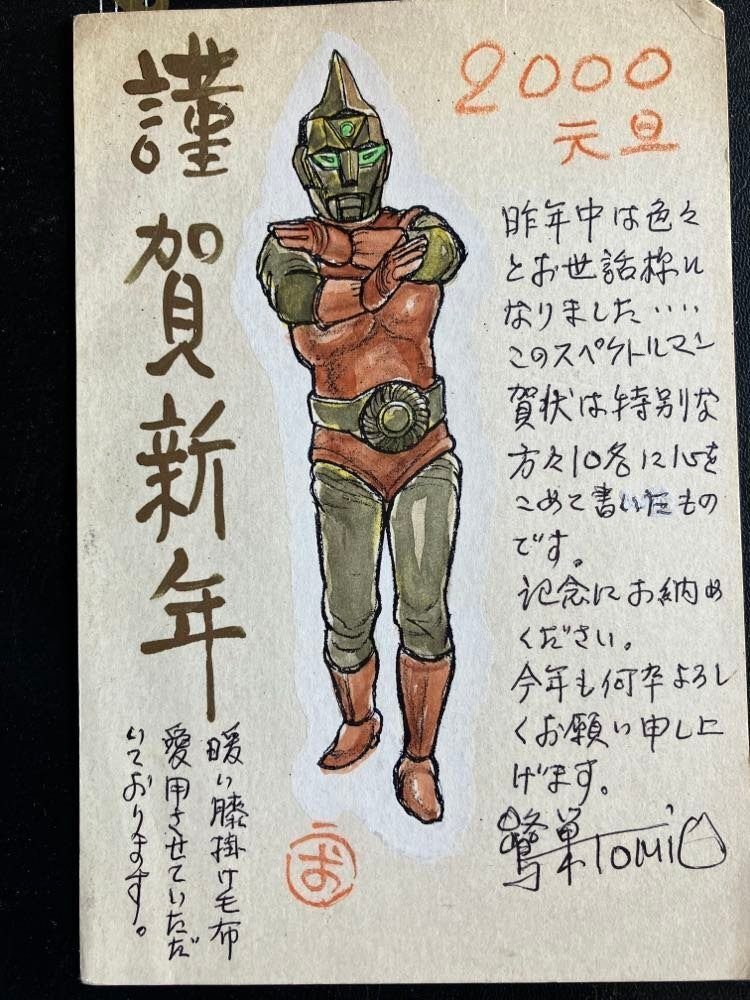 謹賀新年
2000
元旦
昨年中は色々
とお世話様に
なりました‥‥
このスペクトルマン
賀状は特別な
方々10名に心を
こめて書いたもの
です。
記念にお納め
ください。
今年も何卒よろし
くお願い申し上
げます。
鷺巣TOMIO
暖い膝掛け毛布
愛用させていただ
いております。
お